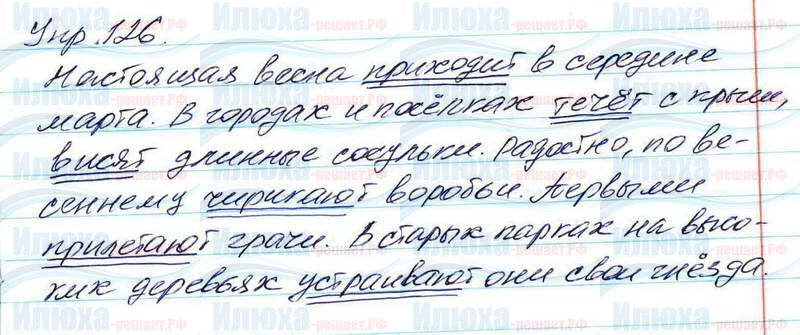 Упр. 126.
Настоящая весна приходит в середине
марта. В городах и посёлках течёт с крыш,
висят длинные сосульки. Радостно, по ве-
сеннему чирикают воробьи. Первыми
прилетают грачи. В старых парках на высо-
ких деревьях устраивают они свои гнёзда.